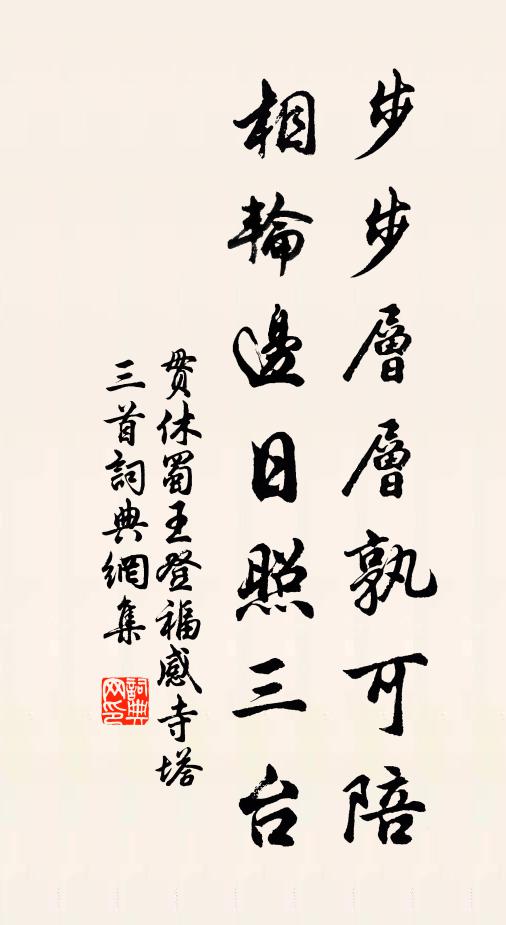 步步層層孰可陪
相輪邊日照三台
貫休蜀王登福感寺塔
三首詞典網集
詞典
网印